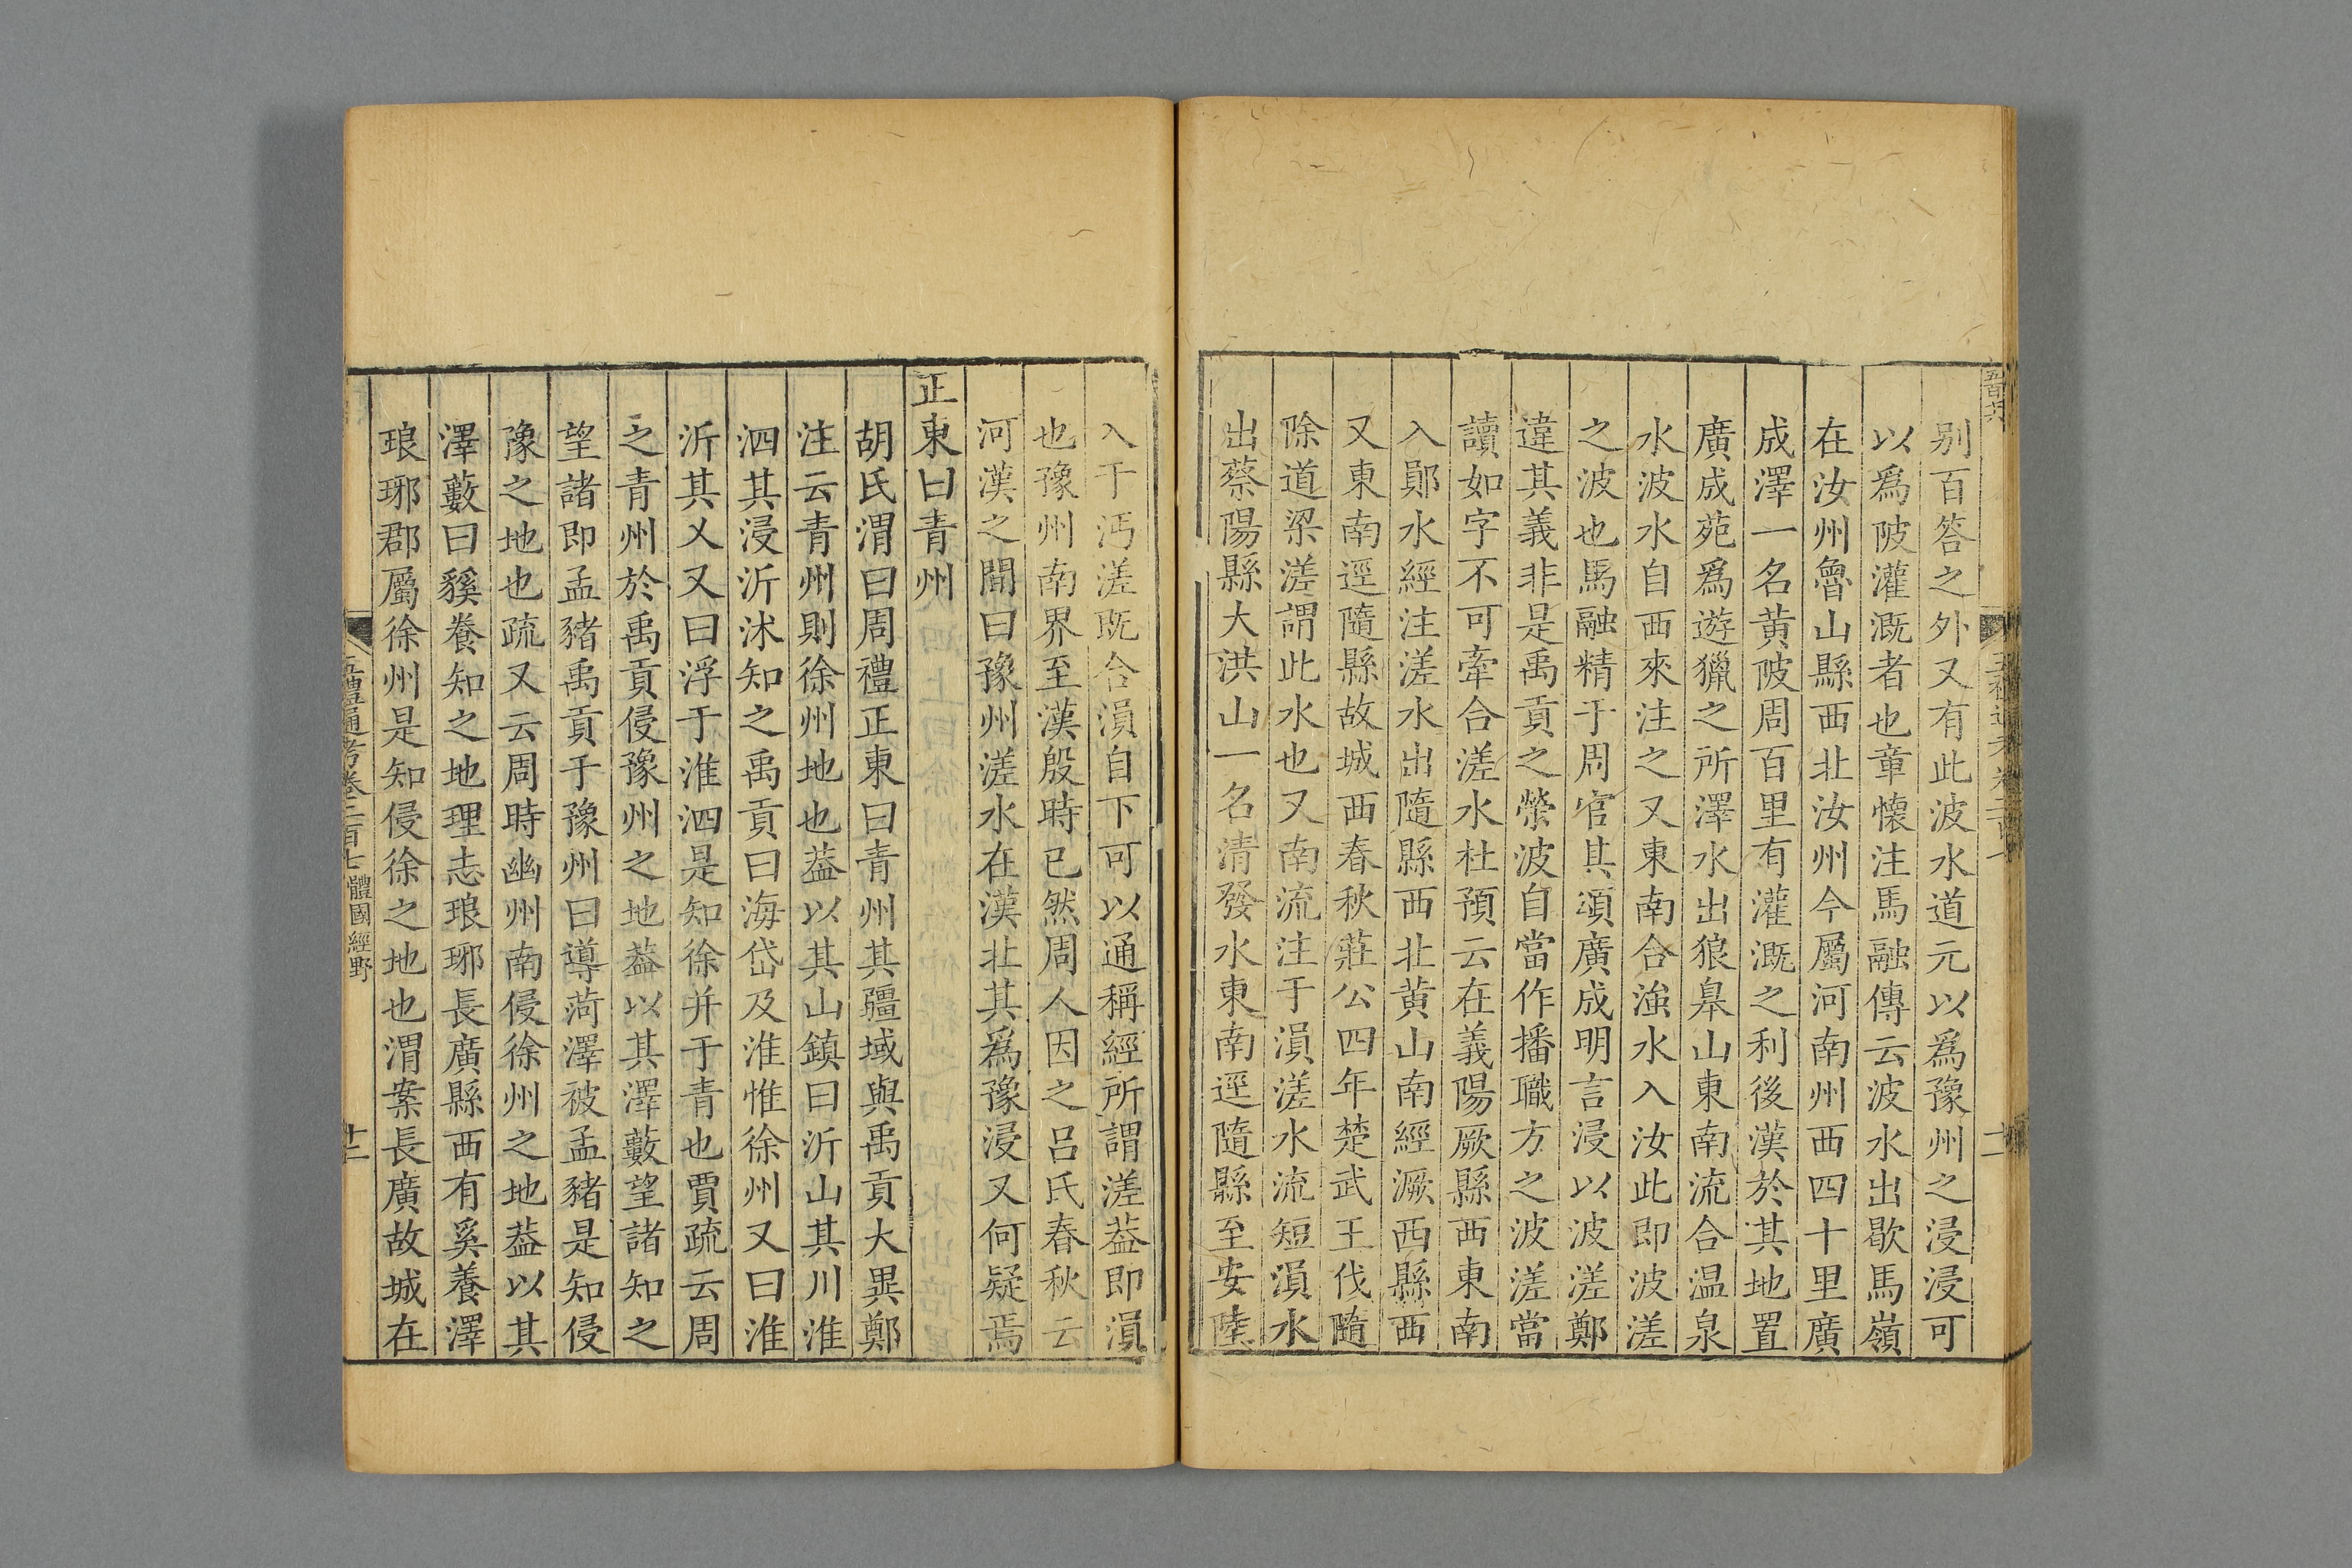 别百答之外又有此波水道元以爲豫州之浸浸可
以爲陂灌溉者也章懷注馬融傳云波水出歇馬嶺
在汝州魯山縣西北汝州今屬河南州西四十里廣
成澤一名黄陂周百里有灌溉之利後漢於其地置
廣成苑爲遊獵之所澤水出狼臯山東南流合温泉
水波水自西來注之又東南合滍水入汝此即波溠
之波也馬融精于周官其頌廣成明言浸以波溠鄭
違其義非是禹貢之滎波自當作播職方之波溠當
讀如字不可牽合溠水杜預云在義陽厥縣西東南
入鄖水經注溠水出隨縣西北黄山南經㵐西縣西
又東南逕隨縣故城西春秋莊公四年楚武王伐隨
除道梁溠謂此水也又南流注于溳溠水流短溳水
出蔡陽縣大洪山一名清發水東南逕隨縣至安陸
入于沔溠既合溳自下可以通稱經所謂溠葢即溳
也豫州南界至漢殷時已然周人因之吕氏春秋云
河漢之間曰豫州溠水在漢北其爲豫浸又何疑焉
正東曰青州
胡氏渭曰周禮正東曰青州其疆域與禹貢大異鄭
注云青州則徐州地也葢以其山鎮曰沂山其川淮
泗其浸沂沭知之禹貢曰海岱及淮惟徐州又曰淮
沂其乂又曰浮于淮泗是知徐并于青也賈疏云周
之青州於禹貢侵豫州之地葢以其澤藪望諸知之
望諸即孟豬禹貢于豫州曰導菏澤被孟豬是知侵
豫之地也疏又云周時幽州南侵徐州之地葢以其
澤藪曰貕養知之地理志琅琊長廣縣西有奚養澤
琅琊郡屬徐州是知侵徐之地也渭案長廣故城在
五禮通考卷二百七 體國經野
十二